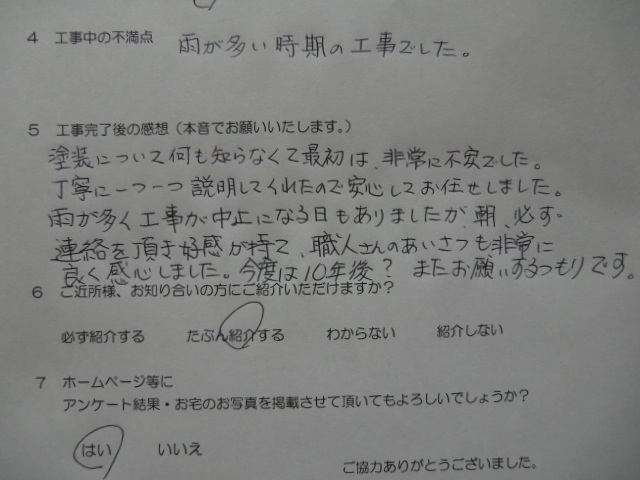 4 工事中の不満点 雨が多い時期の工事でした。
5 工事完了後の感想(本音でお願いいたします。)
塗装について何も知らなくて最初は、非常に不安でした。
丁寧に一つ一つ説明してくれたので安心してお任せしました。
雨が多く工事が中止になる日もありましたが、朝、必ず
連絡を頂き好感が持て、職人さんのあいさつも非常に
良く感心しました。今度は10年後? またお願いするつもりです。
6 ご近所様、お知り合いの方にご紹介いただけますか?
必ず紹介する たぶん紹介する わからない 紹介しない
7 ホームページ等に
アンケート結果・お宅のお写真を掲載させて頂いてもよろしいでしょうか?
はい いいえ
ご協力ありがとうございました。